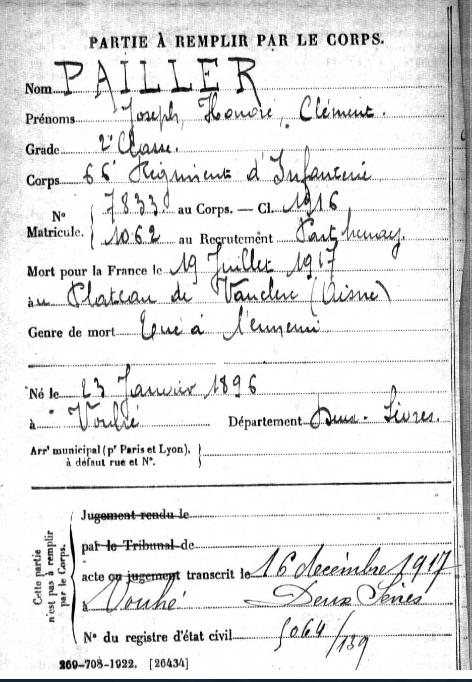 PARTIE À REMPLIR PAR LE CORPS.
Nom PAILLER
Prénoms Joseph, Honoré, Clément.
Grade 2e Classe.
Corps 66e Régiment d'Infanterie
N° Matricule. { 7833 au Corps. — Cl. 1916
1062 au Recrutement Parthenay.
Mort pour la France le 19 Juillet 1917
à u Plateau de Vauclerc (Aisne)
Genre de mort Tué à l'ennemi
Né le 23 Janvier 1896
à Vouhé Département Deux-Sèvres.
Arrt municipal (pr Paris et Lyon),
à défaut rue et N°.
Cette partie n'est pas à remplir par le Corps.
Jugement rendu le
par le Tribunal de
acte ou jugement transcrit le 16 decémbre 1917
à Vouhé Deux Sèvres
N° du registre d'état civil 5064/139
269-708-1922. [26434]